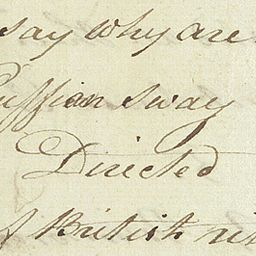 say why are
Ruffian Sway
Directed
of British